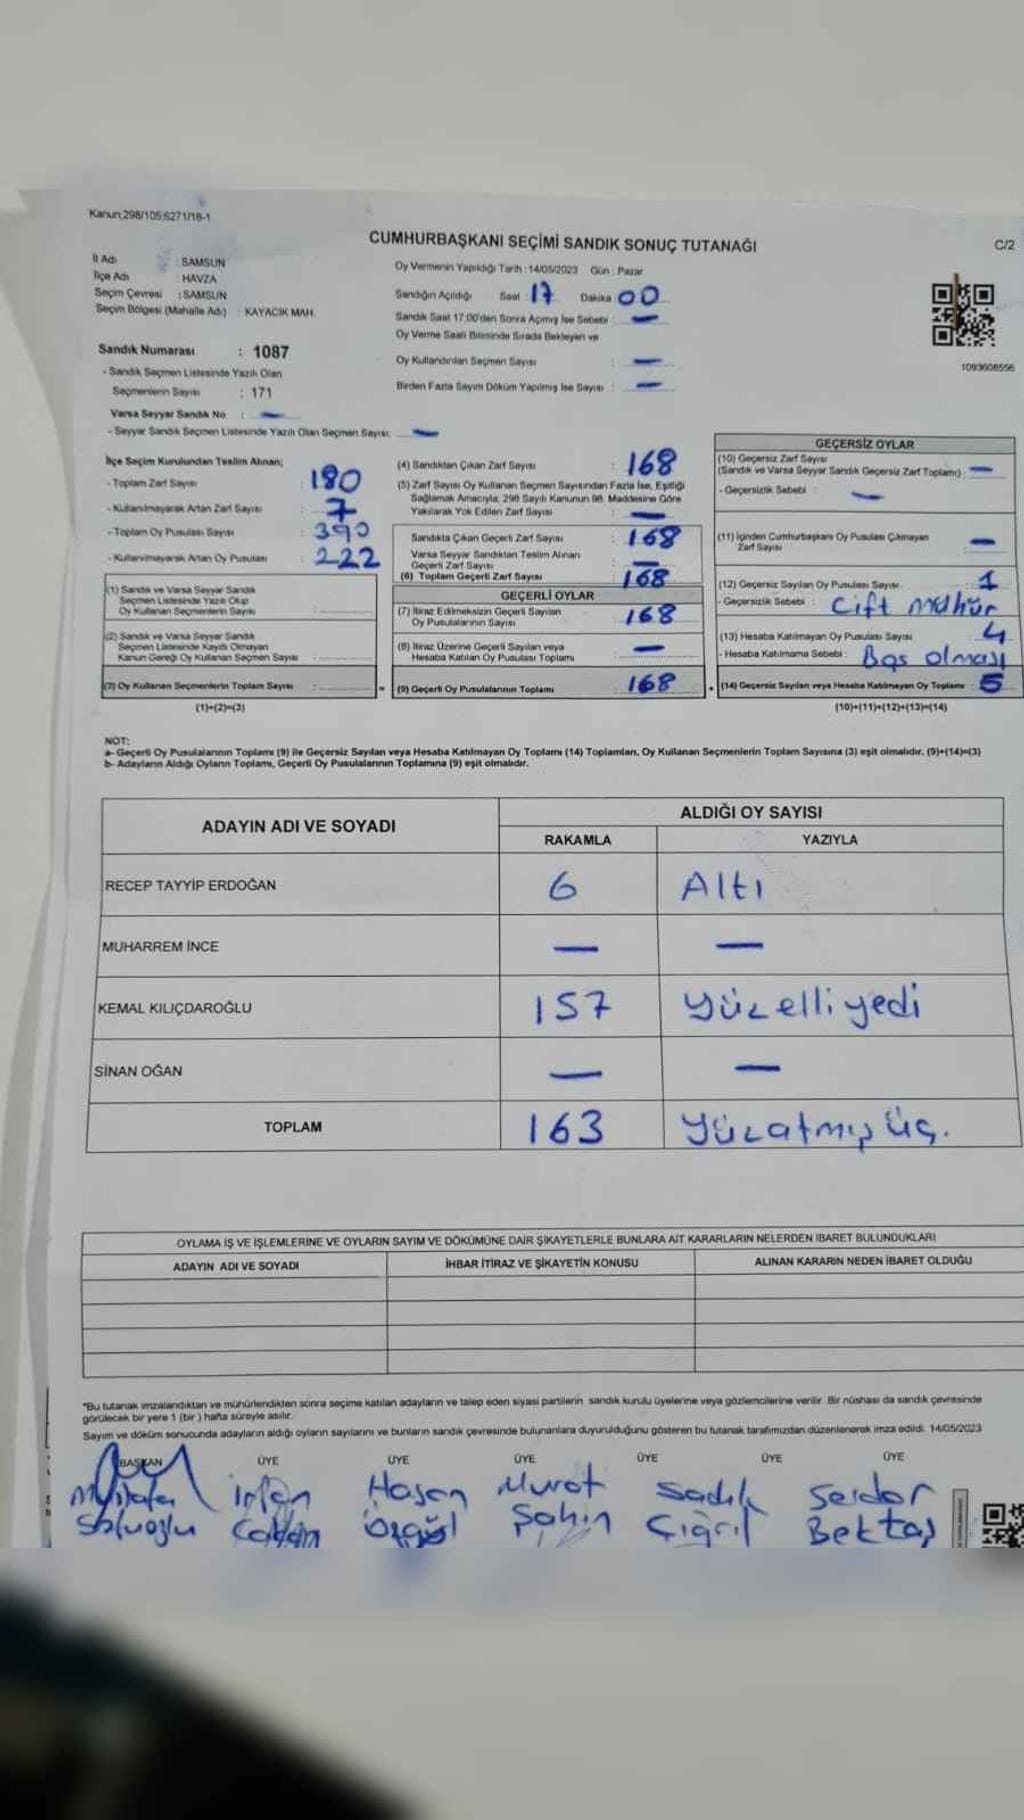 Kanun;298/105;6271/18-1
CUMHURBAŞKANI SEÇİMİ SANDIK SONUÇ TUTANAĞI
C/2
İl Adı : SAMSUN
İlçe Adı : HAVZA
Seçim Çevresi : SAMSUN
Seçim Bölgesi (Mahalle Adı) : KAYACIK MAH.
Sandık Numarası : 1087
- Sandık Seçmen Listesinde Yazılı Olan
Seçmenlerin Sayısı : 171
Varsa Seyyar Sandık No : —
- Seyyar Sandık Seçmen Listesinde Yazılı Olan Seçmen Sayısı: —
Oy Vermenin Yapıldığı Tarih : 14/05/2023 Gün : Pazar
Sandığın Açıldığı Saat 17 Dakika 00
Sandık Saat 17.00'den Sonra Açmış İse Sebebi : —
Oy Verme Saati Bitiminde Sırada Bekleyen ve
Oy Kullandırılan Seçmen Sayısı : —
Birden Fazla Sayım Döküm Yapılmış İse Sayısı : —
1093608556
İlçe Seçim Kurulundan Teslim Alınan;
- Toplam Zarf Sayısı : 180
- Kullanılmayarak Artan Zarf Sayısı : 7
- Toplam Oy Pusulası Sayısı : 390
- Kullanılmayarak Artan Oy Pusulası : 222
(1) Sandık ve Varsa Seyyar Sandık
Seçmen Listesinde Yazılı Olup
Oy Kullanan Seçmenlerin Sayısı :
(2) Sandık ve Varsa Seyyar Sandık
Seçmen Listesinde Kayıtlı Olmayan
Kanun Gereği Oy Kullanan Seçmen Sayısı :
(3) Oy Kullanan Seçmenlerin Toplam Sayısı : =
(1)+(2)=(3)
(4) Sandıktan Çıkan Zarf Sayısı : 168
(5) Zarf Sayısı Oy Kullanan Seçmen Sayısından Fazla İse, Eşitliği
Sağlamak Amacıyla, 298 Sayılı Kanunun 98. Maddesine Göre
Yakılarak Yok Edilen Zarf Sayısı : —
Sandıkta Çıkan Geçerli Zarf Sayısı : 168
Varsa Seyyar Sandıktan Teslim Alınan
Geçerli Zarf Sayısı : —
(6) Toplam Geçerli Zarf Sayısı : 168
GEÇERLİ OYLAR
(7) İtiraz Edilmeksizin Geçerli Sayılan
Oy Pusulalarının Sayısı : 168
(8) İtiraz Üzerine Geçerli Sayılan veya
Hesaba Katılan Oy Pusulası Toplamı : —
(9) Geçerli Oy Pusulalarının Toplamı : 168 +
GEÇERSİZ OYLAR
(10) Geçersiz Zarf Sayısı
(Sandık ve Varsa Seyyar Sandık Geçersiz Zarf Toplamı) : —
- Geçersizlik Sebebi : —
(11) İçinden Cumhurbaşkanı Oy Pusulası Çıkmayan
Zarf Sayısı : —
(12) Geçersiz Sayılan Oy Pusulası Sayısı : 1
- Geçersizlik Sebebi : Çift mühür
(13) Hesaba Katılmayan Oy Pusulası Sayısı : 4
- Hesaba Katılmama Sebebi : Boş olması
(14) Geçersiz Sayılan veya Hesaba Katılmayan Oy Toplamı : 5
(10)+(11)+(12)+(13)=(14)
NOT:
a- Geçerli Oy Pusulalarının Toplamı (9) ile Geçersiz Sayılan veya Hesaba Katılmayan Oy Toplamı (14) Toplamları, Oy Kullanan Seçmenlerin Toplam Sayısına (3) eşit olmalıdır. (9)+(14)=(3)
b- Adayların Aldığı Oyların Toplamı, Geçerli Oy Pusulalarının Toplamına (9) eşit olmalıdır.
ADAYIN ADI VE SOYADI
ALDIĞI OY SAYISI
RAKAMLA YAZIYLA
RECEP TAYYİP ERDOĞAN 6 Altı
MUHARREM İNCE — —
KEMAL KILIÇDAROĞLU 157 yüzelli yedi
SİNAN OĞAN — —
TOPLAM 163 yüzatmış üç.
OYLAMA İŞ VE İŞLEMLERİNE VE OYLARIN SAYIM VE DÖKÜMÜNE DAİR ŞİKAYETLERLE BUNLARA AİT KARARLARIN NELERDEN İBARET BULUNDUKLARI
ADAYIN ADI VE SOYADI İHBAR İTİRAZ VE ŞİKAYETİN KONUSU ALINAN KARARIN NEDEN İBARET OLDUĞU
*Bu tutanak imzalandıktan ve mühürlendikten sonra seçime katılan adayların ve talep eden siyasi partilerin sandık kurulu üyelerine veya gözlemcilerine verilir. Bir nüshası da sandık çevresinde
görülecek bir yere 1 (bir) hafta süreyle asılır.
Sayım ve döküm sonucunda adayların aldığı oyların sayılarını ve bunların sandık çevresinde bulunanlara duyurulduğunu gösteren bu tutanak tarafımızdan düzenlenerek imza edildi. 14/05/2023
BAŞKAN ÜYE ÜYE ÜYE ÜYE ÜYE ÜYE
Mustafa İrfan Hasan Murat Sadık Serdar
Şahin Bektaş